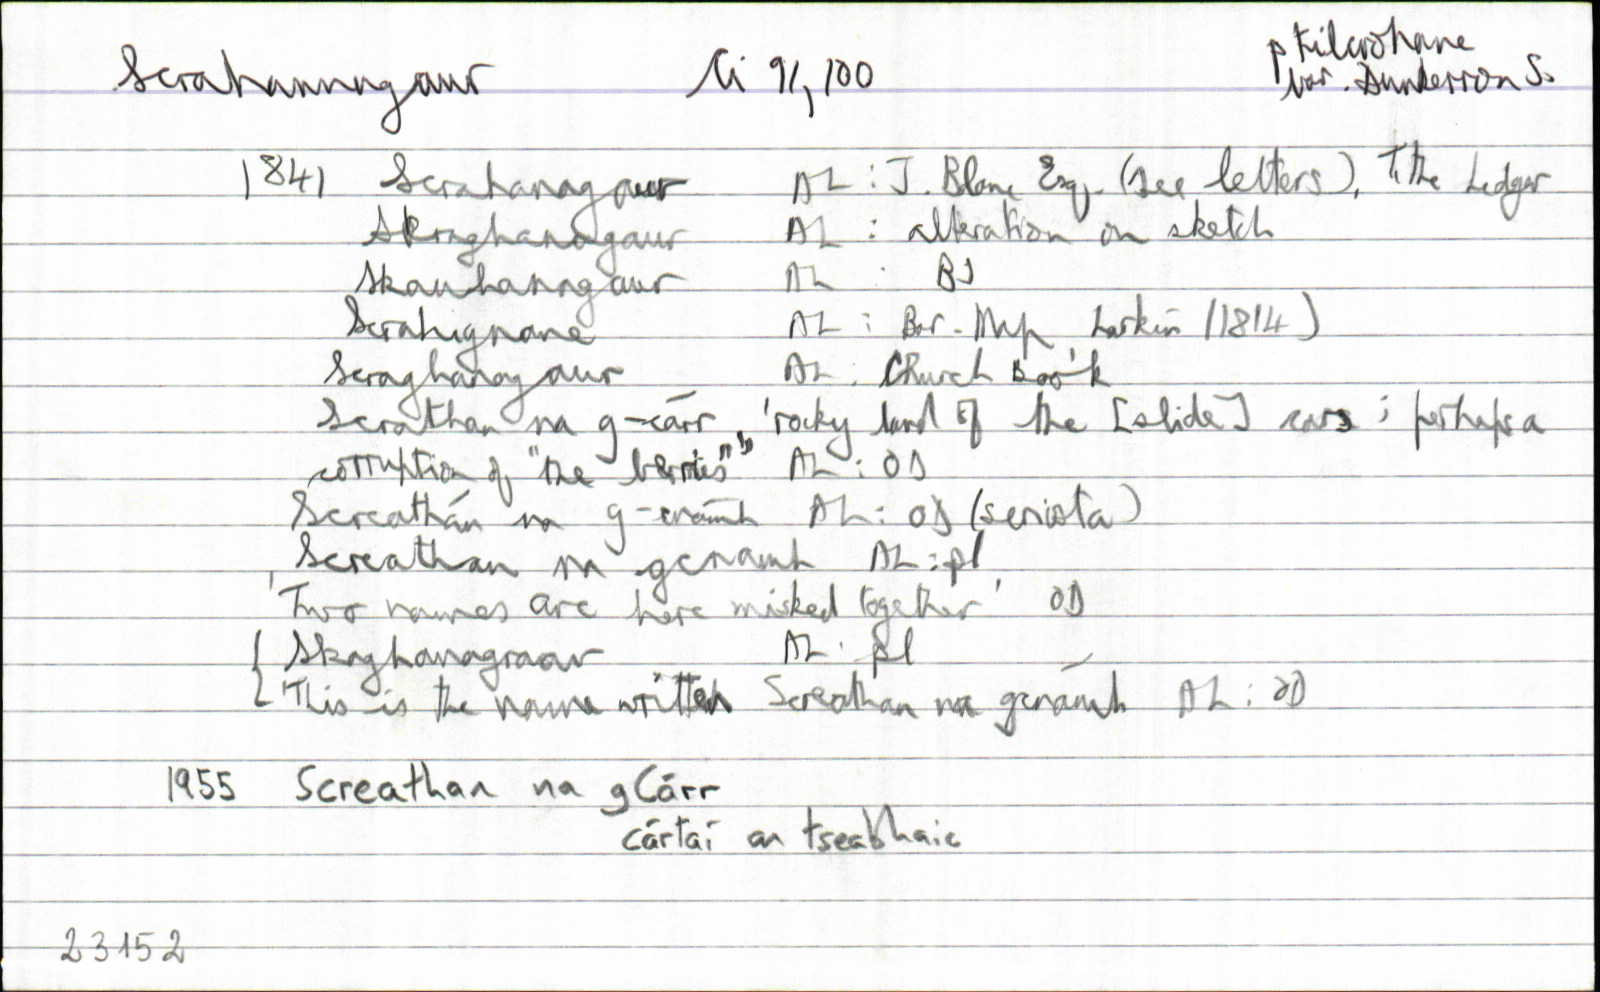 Scrahannagaur Ci 91,100 p Kilcrohane
bar. Dunkerron S.
1841 Scrahanagaur AL : J. Bland Esq. (see letters), Tithe Ledger
Skraghanagaur AL : alteration on sketch
Skauhanagaur AL : BS
Scrahignane AL : Bar. Map Larkin (1814)
Scraghanagaur AL : Church Book
Screathan na g-cárr, 'rocky land of the [slide] cars; perhaps a
corruption of "the berries"' AL : OD
Screathán na g-cnámh AL : OD (scriosta)
Screathan na gcnamh AL : pl
'Two names are here mixed together' OD
Skaghanagraar AL : pl
'This is the name written Screathan na gcnámh AL : OD
1955 Screathan na gCárr
cártaí an tseabhaic
23152